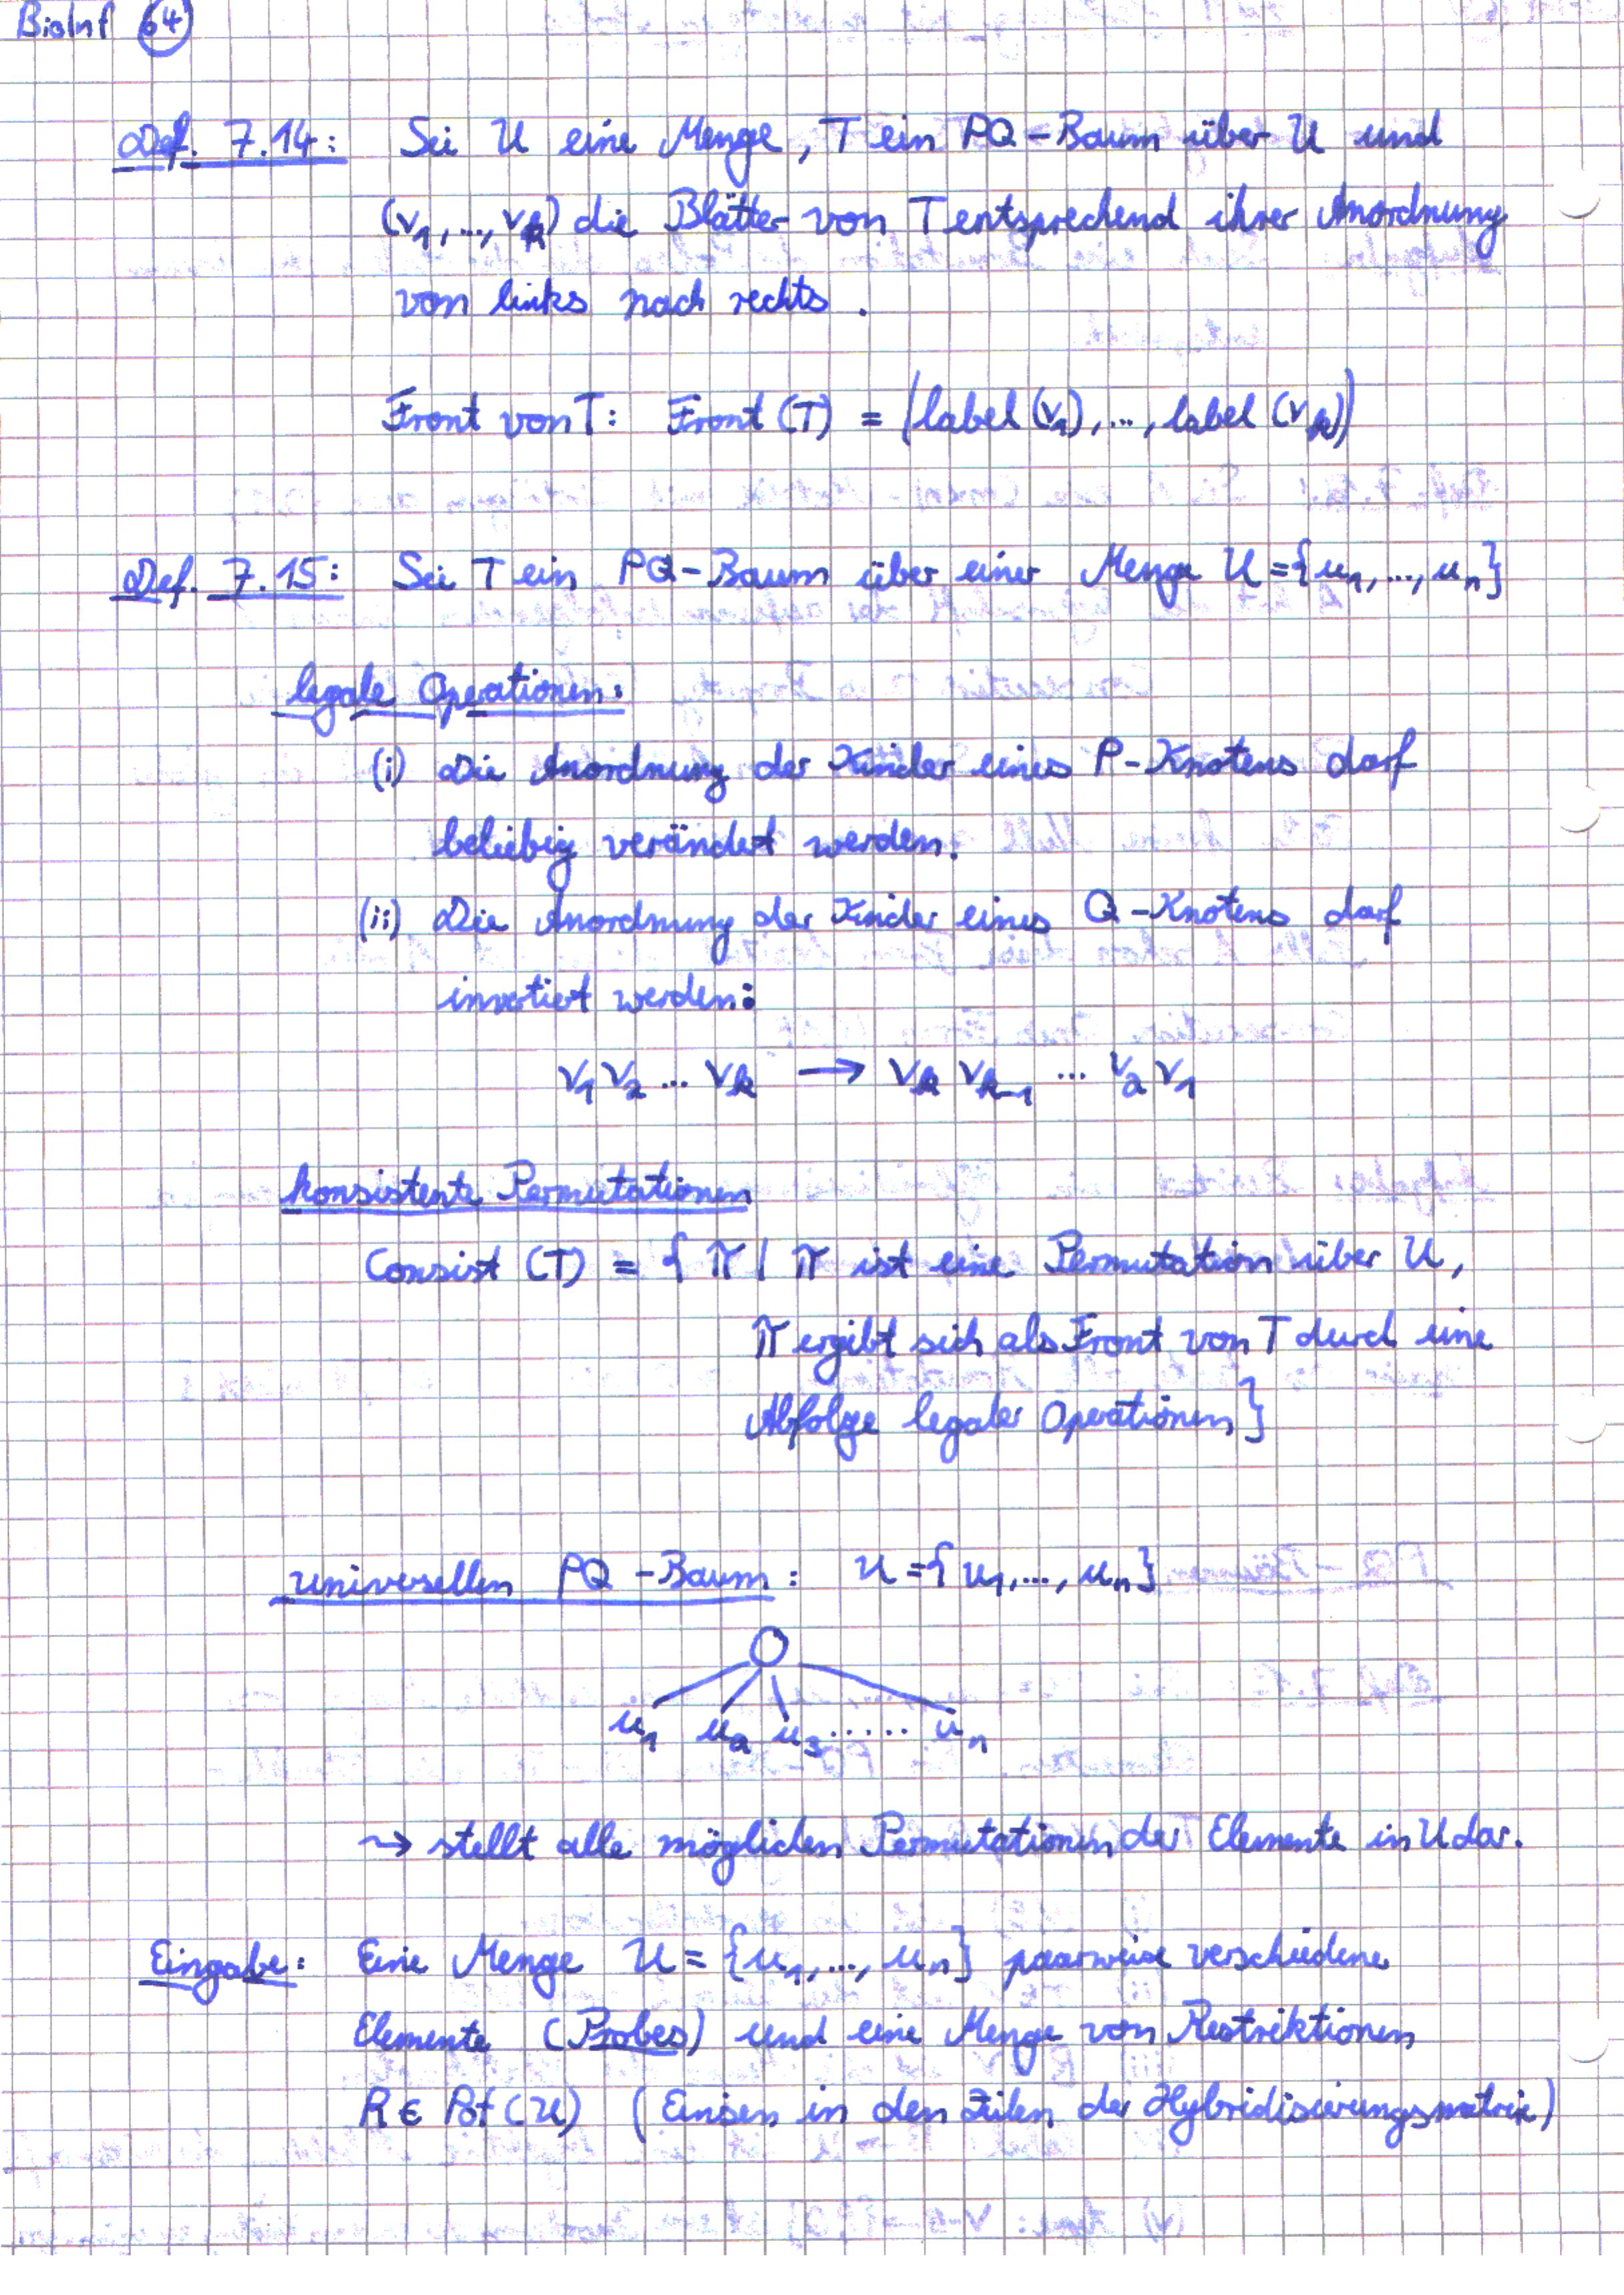 BioInf 64
Def. 7.14: Sei U eine Menge, T ein PQ-Baum über U und
(v₁,...,vₖ) die Blätter von T entsprechend ihrer Anordnung
von links nach rechts.
Front von T: Front(T) = (label(v₁),...,label(vₖ))
Def. 7.15: Sei T ein PQ-Baum über einer Menge U={u₁,...,uₙ}
legale Operationen:
(i) Die Anordnung der Kinder eines P-Knotens darf
beliebig verändert werden.
(ii) Die Anordnung der Kinder eines Q-Knotens darf
invertiert werden:
v₁ v₂ ... vₖ → vₖ vₖ₋₁ ... v₂ v₁
konsistente Permutationen
Consist (T) = { π | π ist eine Permutation über U,
π ergibt sich als Front von T durch eine
Abfolge legaler Operationen}
universellen PQ-Baum: U={u₁,...,uₙ}
u₁ u₂ u₃ ..... uₙ
↝ stellt alle möglichen Permutationen der Elemente in U dar.
Eingabe: Eine Menge U = {u₁,...,uₙ} paarweise verschiedene
Elemente (Probes) und eine Menge von Restriktionen
R ∈ Pot(U) (Einsen in den Zeilen der Hybridisierungsmatrix)